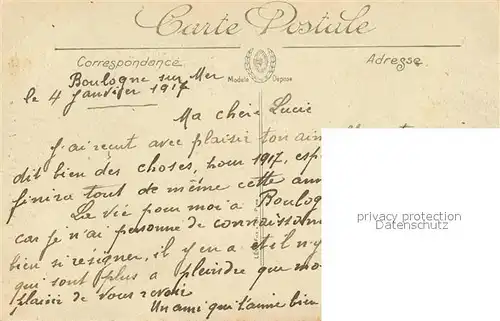 Carte Postale
Correspondance
Adresse
Modèle Déposé
Boulogne sur Mer
le 4 Janvier 1917
Ma chère Lucie
J'ai recut avec plaisir ton
dit bien des choses, pour 1917,
finira tout de même cette
La vie pour moi a
car je n'ai personne de
bien si resigner, il y en a et il n'y
qui sont plus a plaindre que
plaisir de vous revoir
Un ami qui t'aime bien
privacy protection
Datenschutz